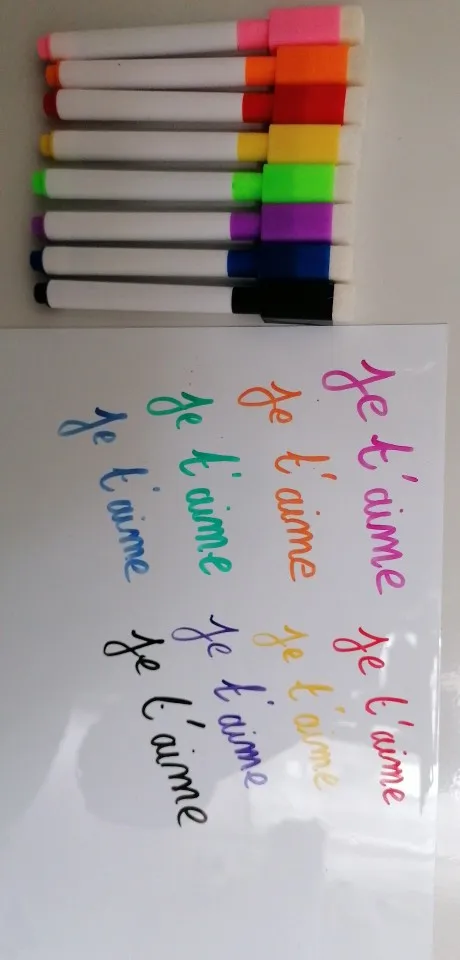 je t'aime je t'aime
je t'aime je t'aime
je t'aime je t'aime
je t'aime je t'aime